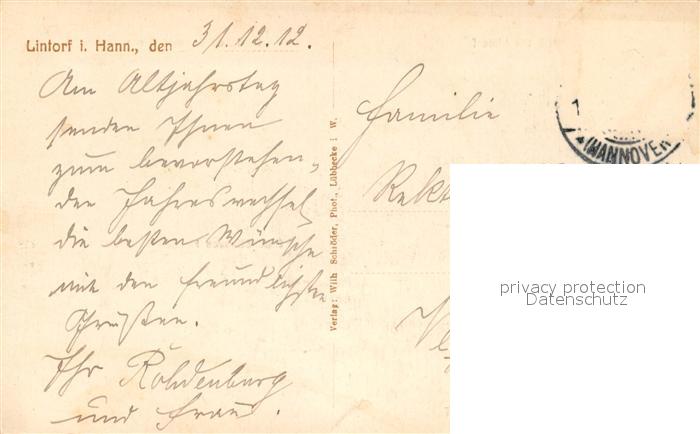 Lintorf i. Hann., den 31.12.12.
Am Altjahrstag
senden Ihnen
zum bevorstehen-
den Jahreswechsel
die besten Wünsche
mit den freundlichsten
Grüßen.
Ihr Rohdenburg
und Frau.
Verlag: Wilh. Schröder, Phot., Lübbecke i. W.
Familie
Rekt
1
(HANNOVER
privacy protection
Datenschutz